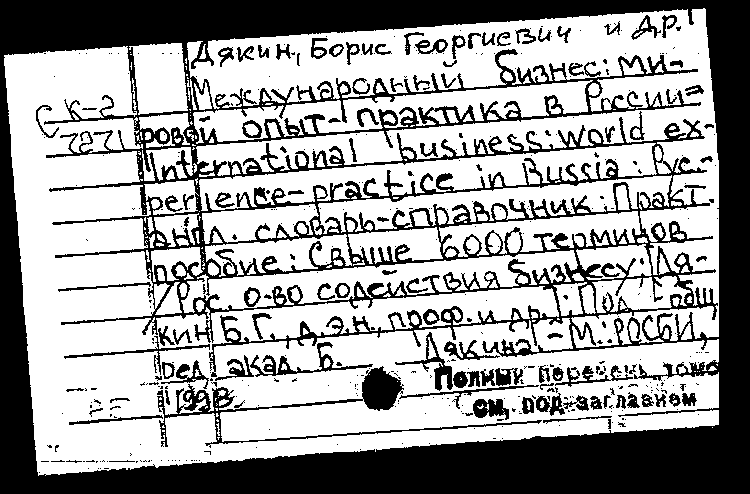 Дякин, Борис Георгиевич и др.
Международный бизнес: ми-
С К-5
7271
ровой опыт-практика в России=
International business: world ex-
perience-practice in Russia: Рус.-
англ. словарь-справочник: Практ.
пособие: Свыше 6000 терминов
/ Рос. о-во содействия бизнесу; [Дя-
кин Б.Г., д.э.н., проф. и др.]; Под общ.
ред. акад. Б. Дякина. - М.: РОСБИ,
1998
Полный перечень томо
см. под заглавием